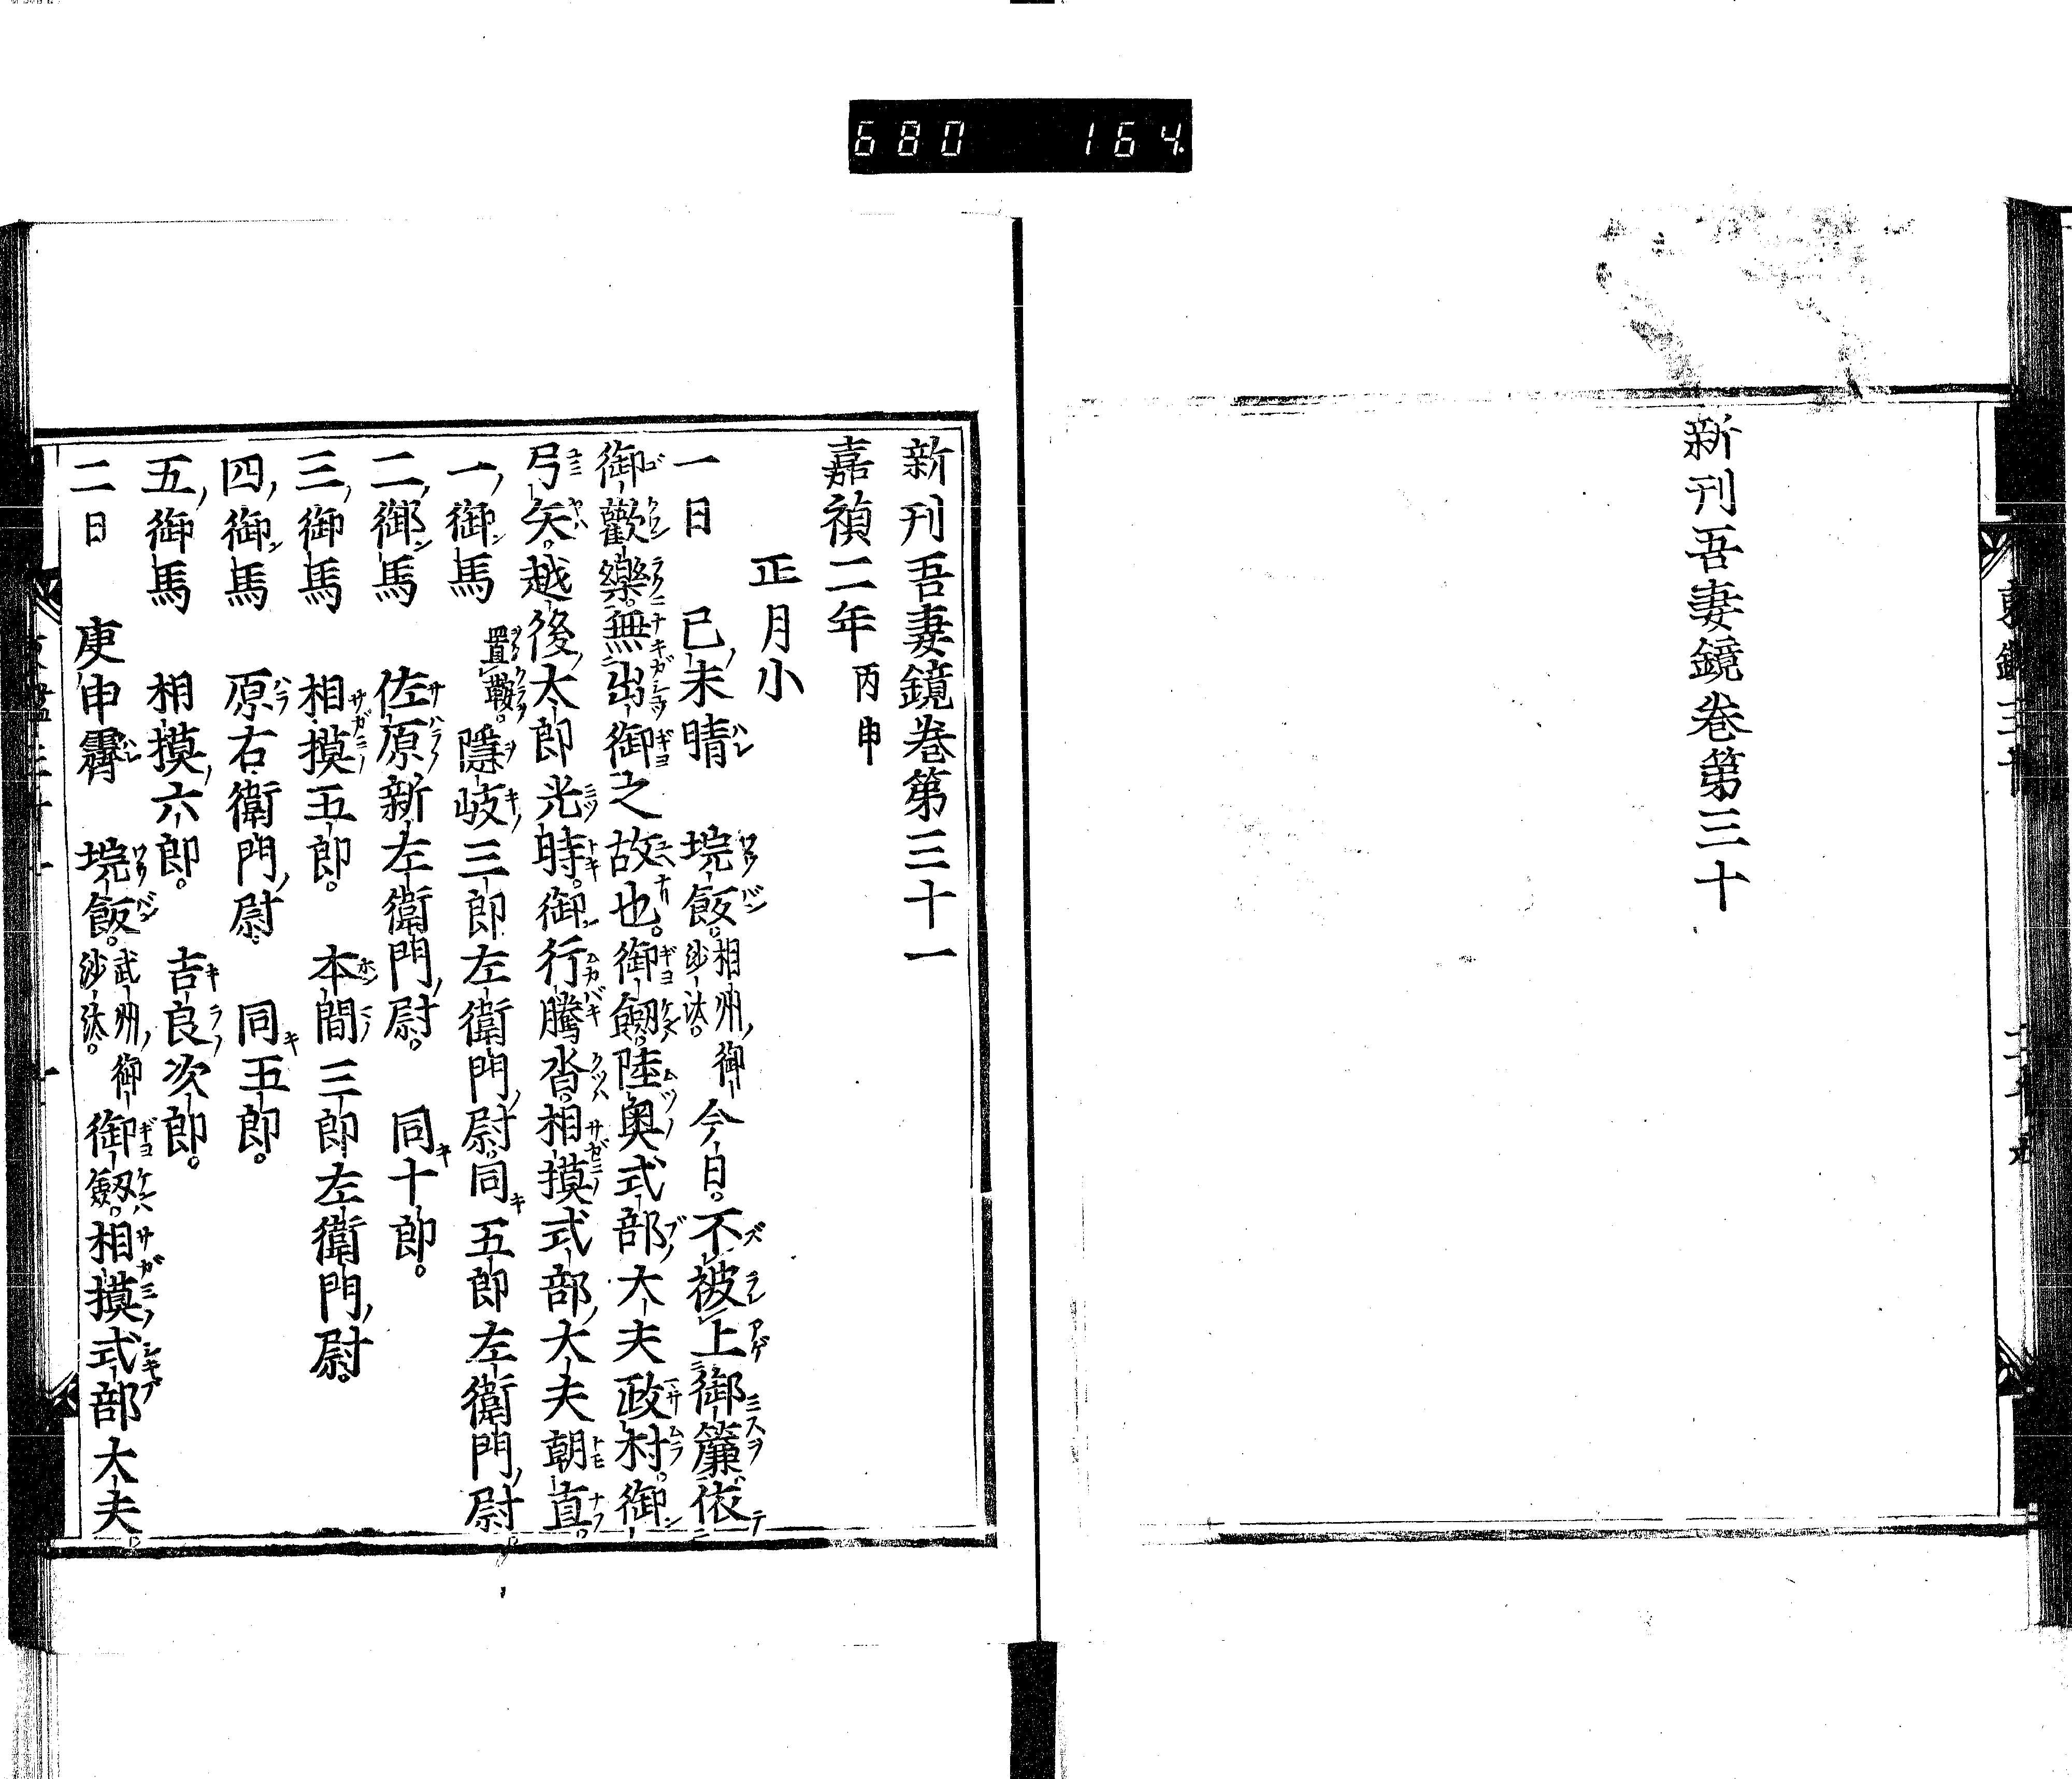 680 164
新刊吾妻鏡卷第三十
新刊吾妻鏡卷第三十一
嘉禎二年丙申
正月小
一日 己未晴 垸飯。相州御沙汰。今日。不被上御簾依
御歡樂。無出御之故也。御劔。陸奥式部大夫政村。御
弓矢。越後太郎光時。御行騰沓。相摸式部大夫朝直。
一御馬置鞍。隱岐三郎左衛門尉。同五郎左衛門尉。
二御馬 佐原新左衛門尉。 同十郎。
三御馬 相摸五郎。 本間三郎左衛門尉。
四御馬 原右衛門尉。 同五郎。
五御馬 相摸六郎。 吉良次郎。
二日 庚申霽 垸飯。武州御沙汰。御劔。相摸式部大夫。